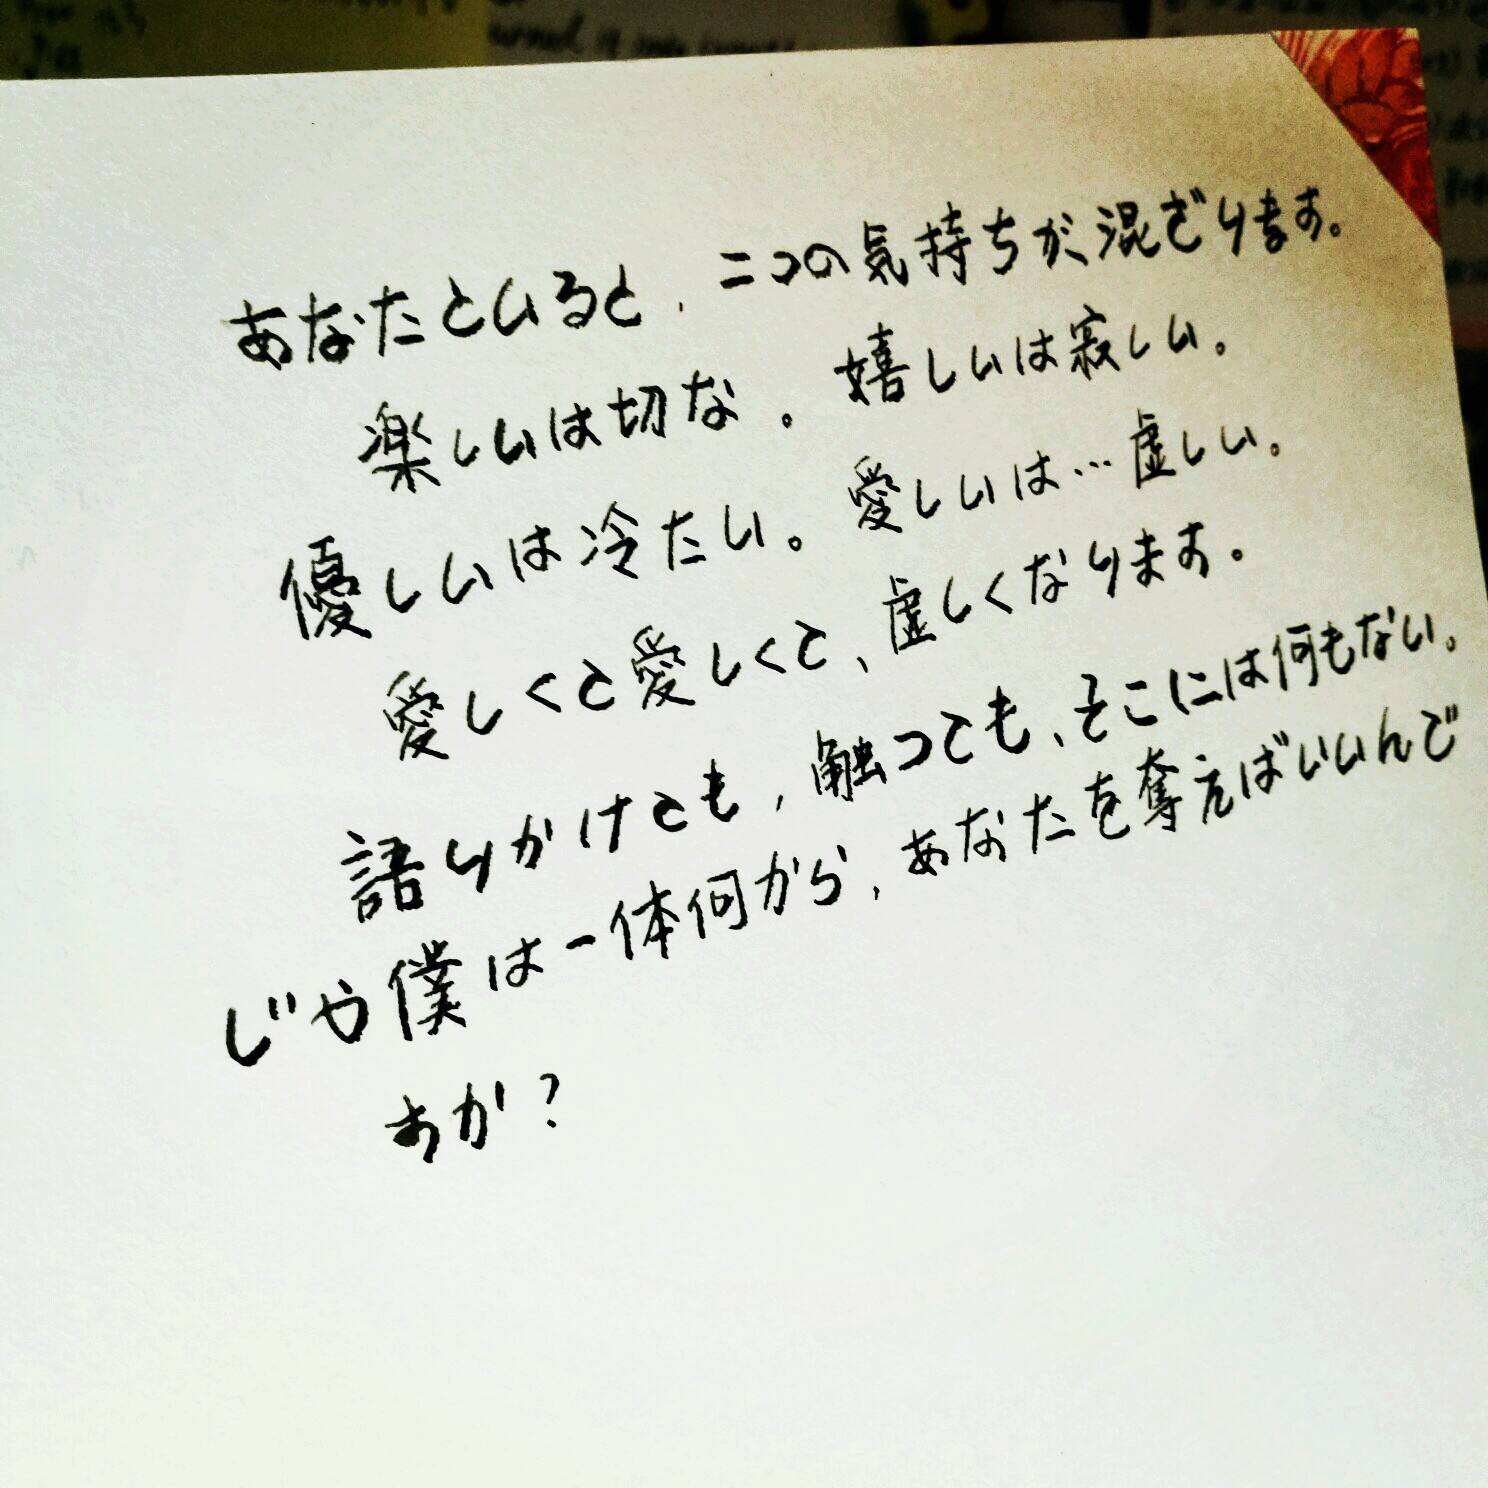 あなたといると、二つの気持ちが、混ざります。
楽しいは切な。嬉しいは寂しい。
優しいは冷たい。愛しいは…虚しい。
愛しくて愛しくて、虚しくなります。
語りかけても、触っても、そこには何もない。
じゃ僕は一体何から、あなたを奪えばいいんで
すか?